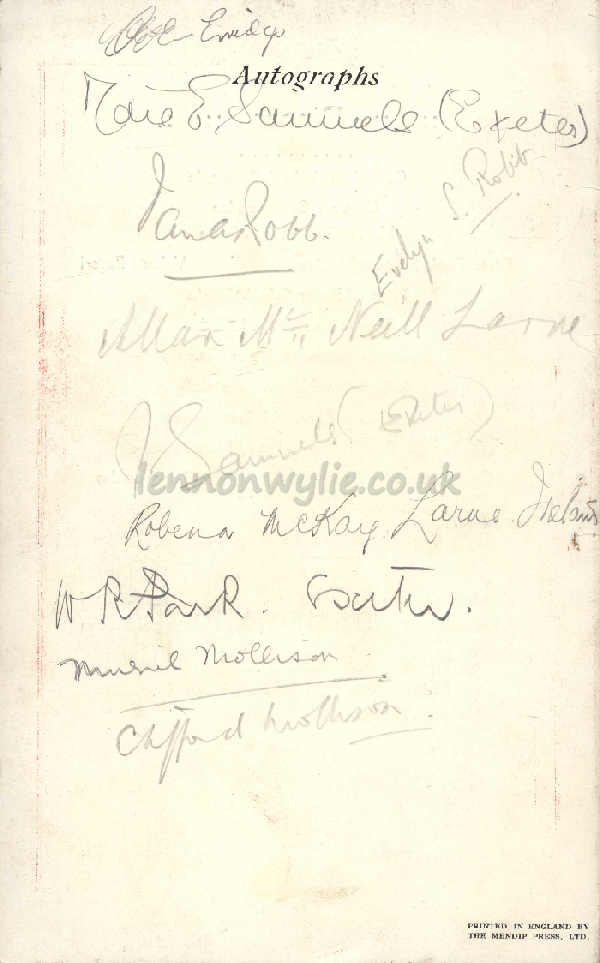 Autographs
E Samuels (Exeter)
James Robb.
Evelyn S. Robb
Allan Mc Neill Larne
J Samuels (Exeter)
lennonwylie.co.uk
Robena McKay Larne Ireland
W R Park. Exeter.
Muriel Mollison
Clifford Mollison.
PRINTED IN ENGLAND BY
THE MENDIP PRESS, LTD.